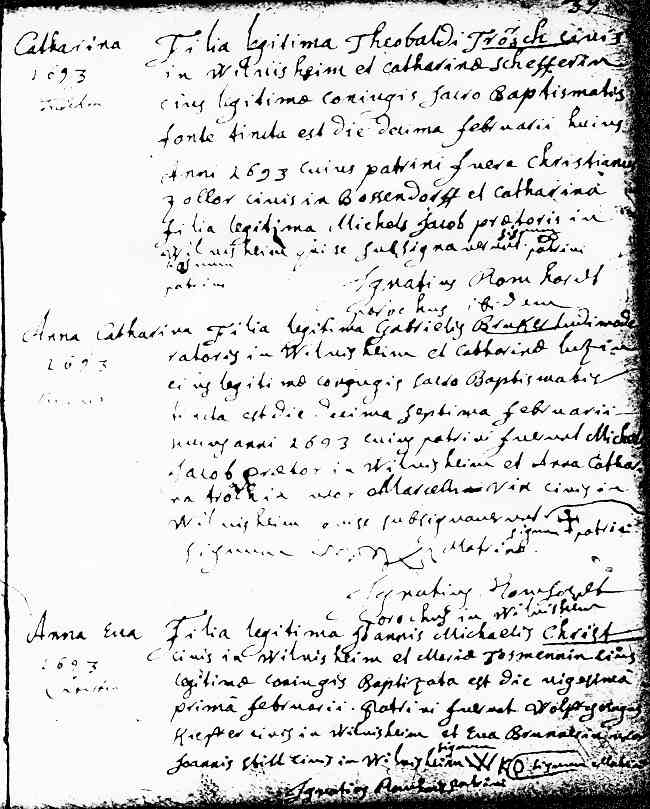 37
Catharina
1693
Filia legitima Theobaldi Trösch civis
in Wilwisheim et Catharinæ Schefferin
eius legitimæ coniugis sacro Baptismatis
fonte tincta est die decima februarii huius
Anni 1693 cuius patrini fuere Christianus
Zollor civis in Bossendorff et Catharina
filia legitima Michels Jacob prætoris in
Wilwisheim qui se subsignaverunt signum patrini
signum
patrini
Ignatius Romhardt
Parochus ibidem
Anna Catharina
1693
Filia legitima Gabrielis Bruker ludimode
ratoris in Wilwisheim et Catharinæ
eius legitimæ coniugis sacro Baptismatis
tincta est die decima septima februarii
huius anni 1693 cuius patrini fuerunt Michael
Jacob prætor in Wilwisheim et Anna Cathari
na uxor Marcelli civis in
Wilwisheim qui se subsignaverunt signum patrini
signum Matrinæ
Ignatius Romhardt
Parochus in Wilwisheim
Anna Eva
1693
Filia legitima Joannis Michaelis Christ
civis in Wilwisheim et Mariæ eius
legitimæ coniugis Baptizata est die vigesima
prima februarii. Patrini fuerunt Wolffgangus
Kieffer civis in Wilwisheim et Eva uxor
Joannis Still civis in Wilwisheim signum WK signum Matrinæ
Ignatius patrini